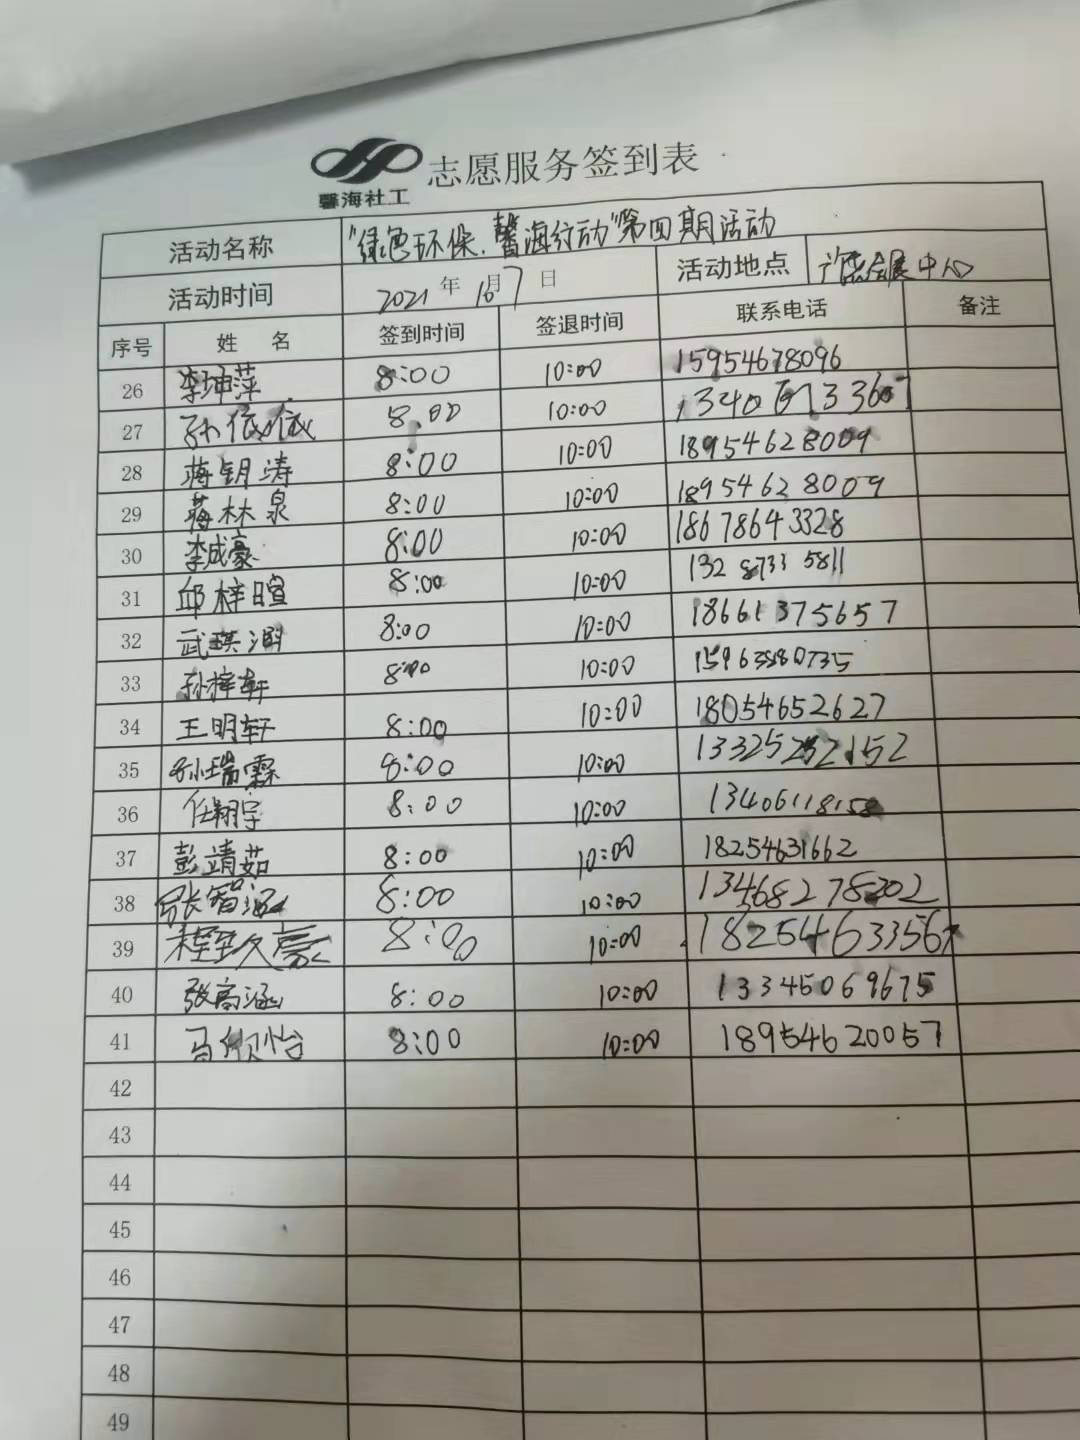 馨海社工 志愿服务签到表
活动名称 "绿色环保.馨海行动"第四期活动
活动时间 2021 年 10 月 7 日 活动地点 会展中心
序号 姓 名 签到时间 签退时间 联系电话 备注
26 李坤萍 8:00 10:00 15954678096
27 孙依依 8:00 10:00
28 蒋钥涛 8:00 10:00 18954628009
29 蒋林泉 8:00 10:00 18954628009
30 李成豪 8:00 10:00 18678643328
31 邱梓暄 8:00 10:00 132 8733 5811
32 武琪 8:00 10:00 18661375657
33 孙梓轩 8:00 10:00
34 王明轩 8:00 10:00 18054652627
35 孙瑞霖 8:00 10:00 13325252152
36 任翔宇 8:00 10:00 13406118158
37 彭靖茹 8:00 10:00 18254631662
38 张智涵 8:00 10:00
39 程久豪 8:00 10:00
40 张高涵 8:00 10:00 13345069675
41 马欣怡 8:00 10:00 18954620057
42
43
44
45
46
47
48
49